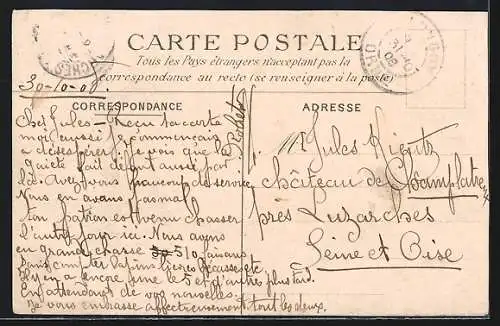 CARTE POSTALE
Tous les Pays étrangers n'acceptant pas la
correspondance au recto (se renseigner à la poste)
30-10-08
CORRESPONDANCE
ADRESSE
Cher Jules - Reçu ta carte
moi aussi je commençais
a désespérer. Je vois que la
gaieté fait défaut aussi par
là. Avez vous beaucoup de service
Nous en avons pas mal
ton patron est venu chasser
l'autre jour ici. Nous avons
eu grande chasse 510 faisans
Sans compter lapins lièvres
Il y en a encore une le 5 et d'autres plus tard.
En attendant de vos nouvelles
Je vous embrasse affectueusement tout les deux.
Jules
château de Champlatreux
près Luzarches
Seine et Oise